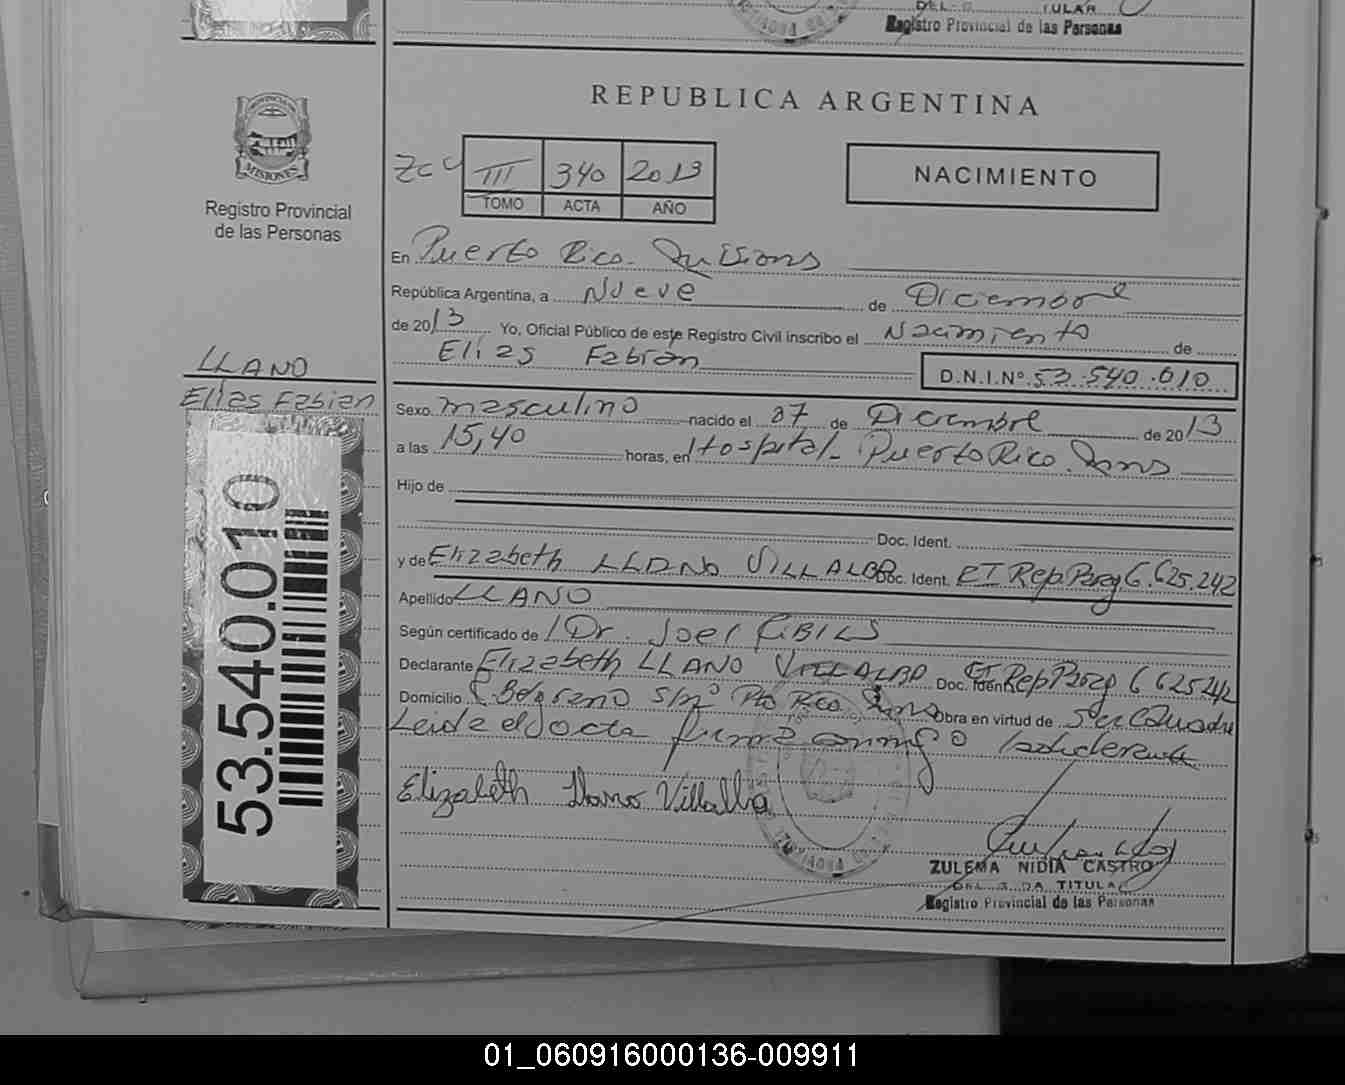 TULAR
Registro Provincial de las Personas
REPUBLICA ARGENTINA
PROVINCIA DE
MISIONES
Registro Provincial
de las Personas
III 340 2013
TOMO ACTA AÑO
NACIMIENTO
En Puerto Rico. Misiones
República Argentina, a Nueve de Diciembre
de 2013 Yo, Oficial Público de este Registro Civil inscribo el Nacimiento de
Elias Fabian D.N.I.Nº 53.540.010
LLANO
Elias Fabian
53.540.010
Sexo masculino nacido el 07 de Diciembre de 2013
a las 15,40 horas, en Hospital- Puerto Rico.
Hijo de
Doc. Ident.
y de Elizabeth LLANO VILLALBA Doc. Ident. CI Rep Parag 6.625.242
Apellido LLANO
Según certificado de Dr. Joel CIBILS
Declarante Elizabeth LLANO VILLALBA Doc. Ident. CI Rep Parag 6 625 242
Domicilio Belgrano s/nº Pto Rico Obra en virtud de
Leida el acta firma conmigo
Elizabeth Llano Villalba
ZULEMA NIDIA CASTRO
TITULA
Registro Provincial de las Personas
01_060916000136-009911